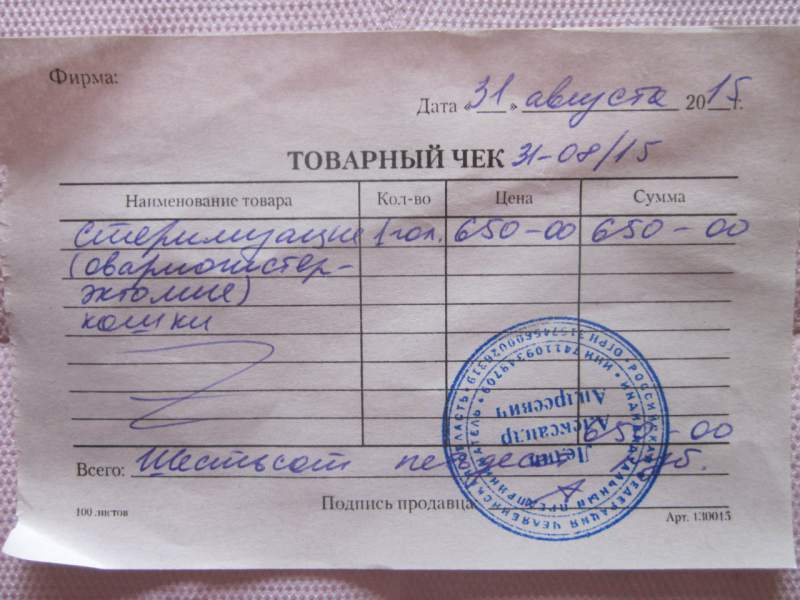 Фирма:
Дата «31» августа 2015г.
ТОВАРНЫЙ ЧЕК 31-08/15
Наименование товара Кол-во Цена Сумма
стерилизация 1 гол. 650-00 650-00
(овариогистер-
эктомия)
кошки
650-00
Всего: Шестьсот пятьдесят руб.
Подпись продавца
100 листов Арт. 130015
РОССИЙСКАЯ ФЕДЕРАЦИЯ ЧЕЛЯБИНСКАЯ ОБЛАСТЬ
ИНДИВИДУАЛЬНЫЙ ПРЕДПРИНИМАТЕЛЬ
Александр
Андреевич